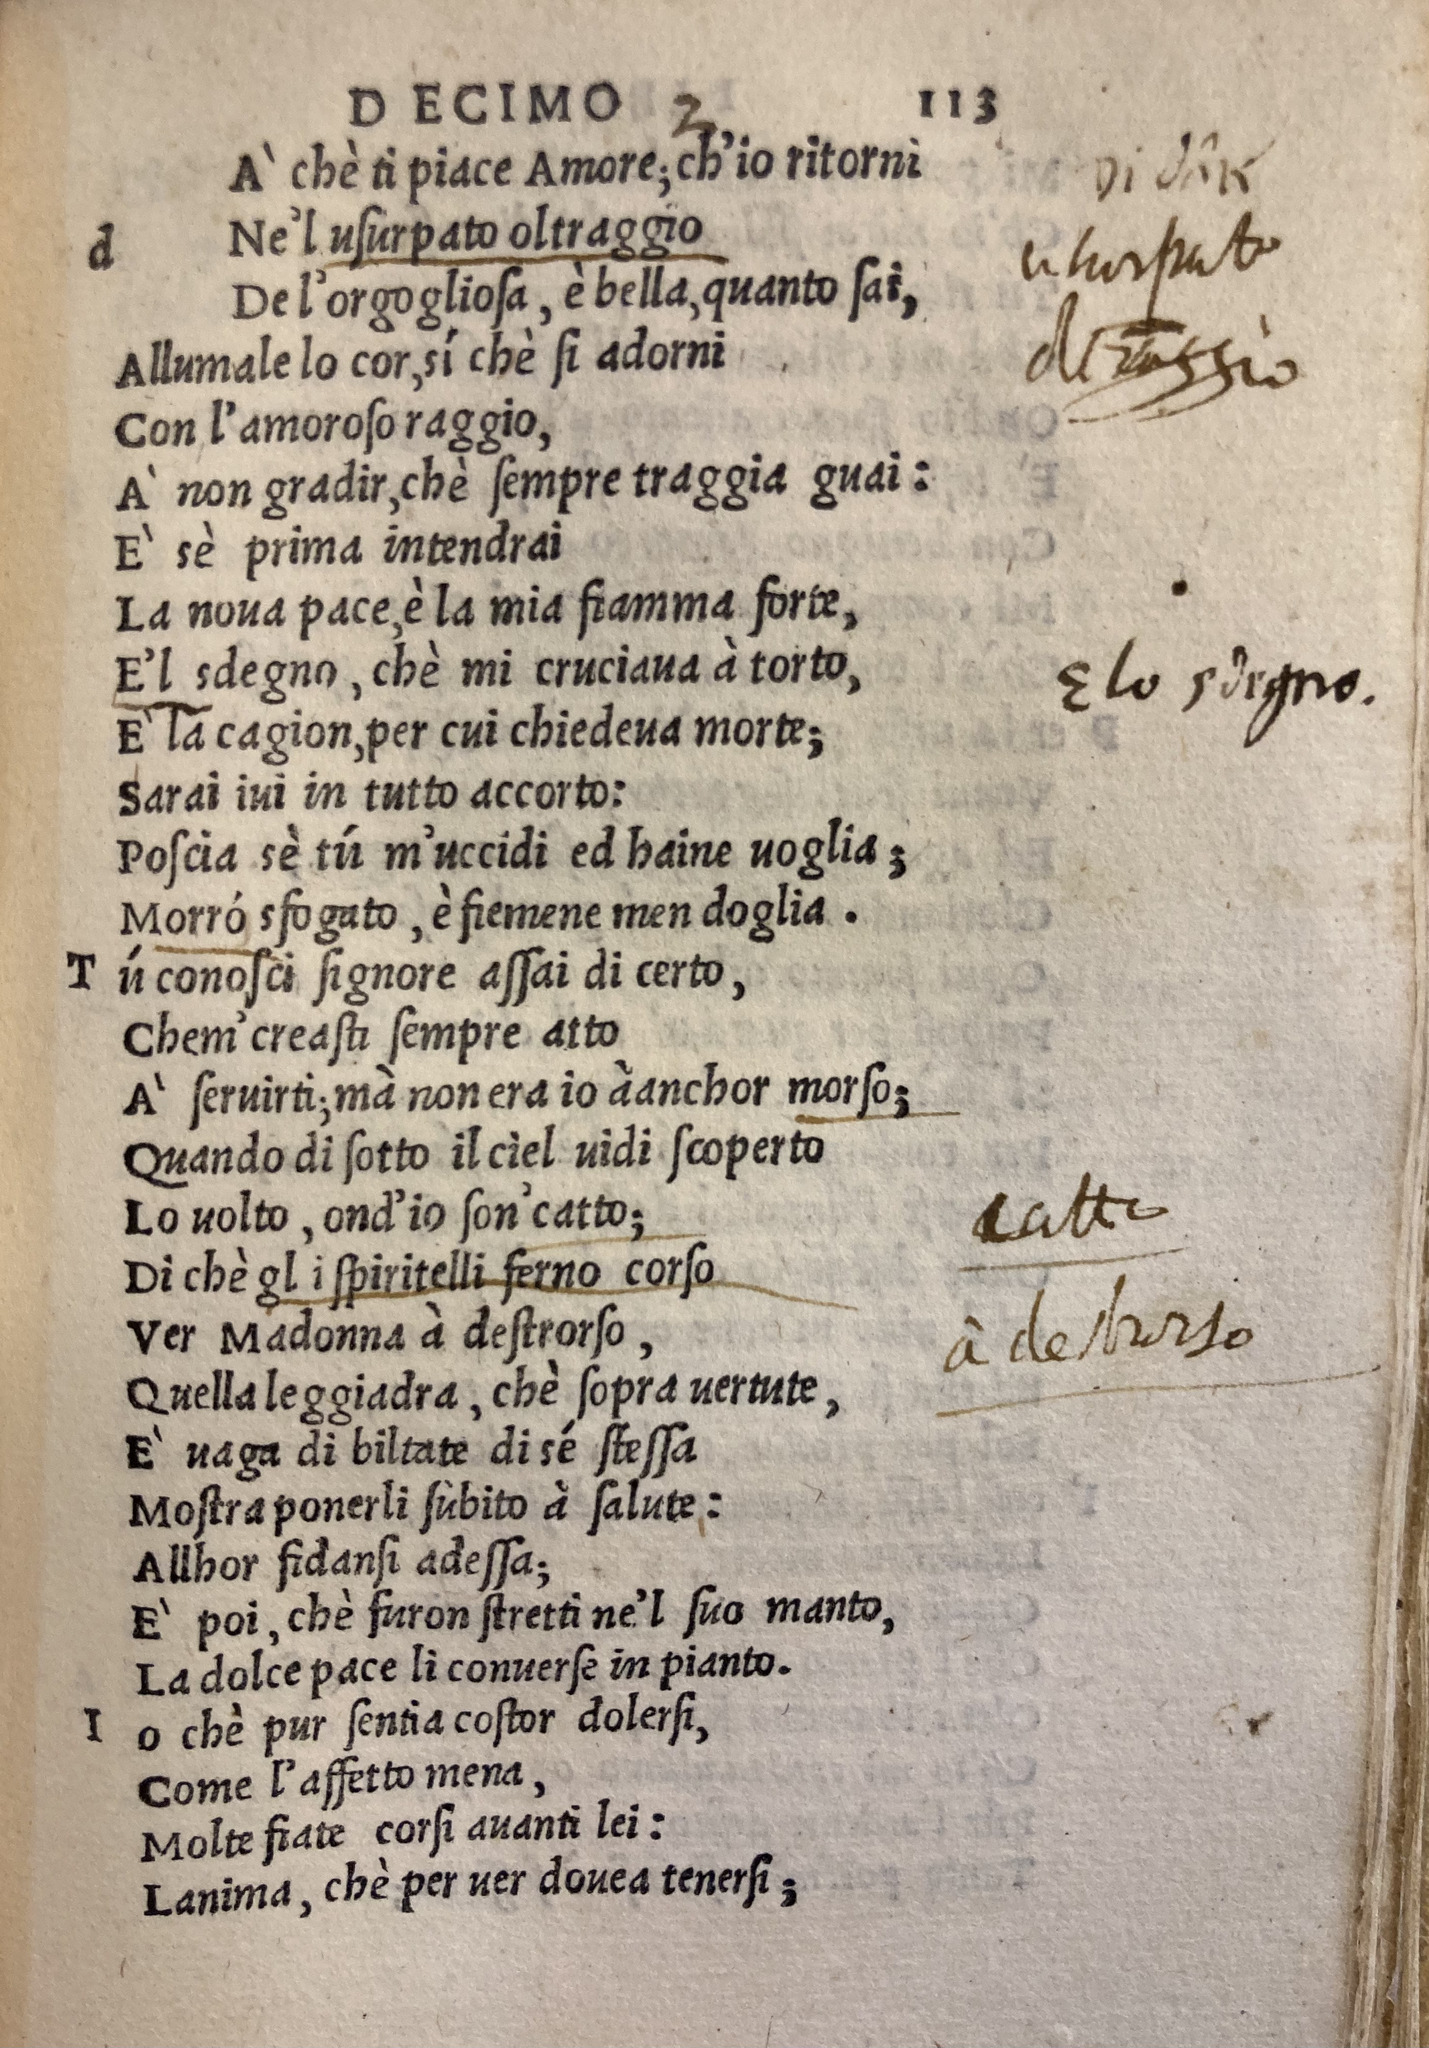 DECIMO 2 113
A' chè ti piace Amore; ch'io ritorni
d Ne'l uſurpato oltraggio
uſurpato
De l'orgoglioſa, è bella, quanto ſai,
Allumale lo cor, sí chè ſi adorni
Con l'amoroſo raggio,
A' non gradir, chè ſempre traggia guai:
E' sè prima intendrai
La noua pace, è la mia fiamma forte,
E'l sdegno, chè mi cruciaua à torto,
E lo sdegno.
E' la cagion, per cui chiedeua morte;
Sarai iui in tutto accorto:
Poſcia sè tú m'uccidi ed haine uoglia;
Morró sfogato, è fiemene men doglia.
Tú conoſci ſignore aſſai di certo,
Chem' creaſti ſempre atto
A' ſeruirti; mà non era io àanchor morſo;
Quando di ſotto il cìel uidi ſcoperto
Lo uolto, ond'io ſon' catto;
catto
Di chè gl i ſpiritelli ferno corſo
Ver Madonna à deſtrorſo,
à deſtrorſo
Quella leggiadra, chè ſopra uertute,
E' uaga di biltate di sé ſteſſa
Moſtra ponerli ſùbito à ſalute:
Allhor fidanſi adeſſa;
E' poi, chè furon ſtretti ne'l ſuo manto,
La dolce pace li conuerſe in pianto.
Io chè pur ſentia coſtor dolerſi,
Come l'affetto mena,
Molte fiate corſi auanti lei:
Lanima, chè per uer douea tenerſi;